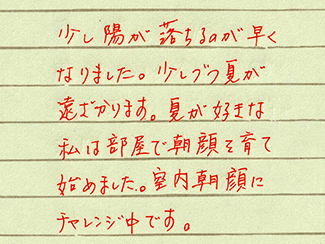 少し陽が落ちるのが早く
なりました。少しづつ夏が
遠ざかります。夏が好きな
私は部屋で朝顔を育て
始めました。室内朝顔に
チャレンジ中です。